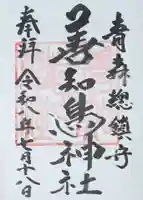 青森総鎮守
善知鳥神社
奉拝 令和八年七月十八日